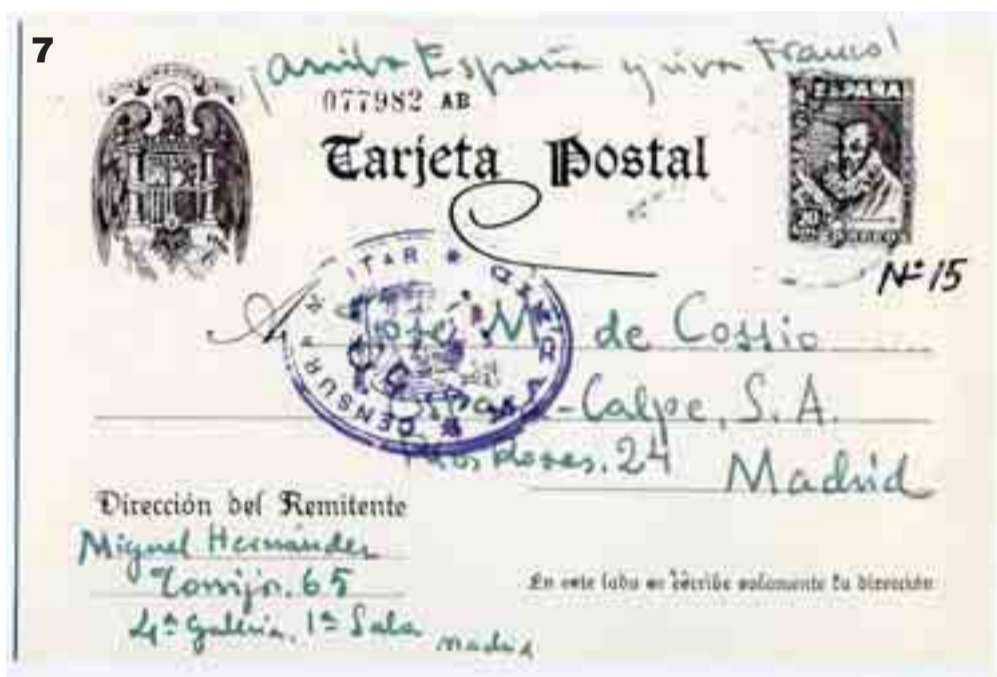 7
¡Arriba España y viva Franco!
077982 AB
Tarjeta Postal
ESPAÑA
CORREOS
Nº 15
A José Mª de Cossio
Espasa-Calpe, S. A.
24
Madrid
CENSURA MILITAR
Dirección del Remitente
Miguel Hernández
Torrijos. 65
4ª Galería, 1ª Sala
Madrid
En este lado se escribe solamente la dirección